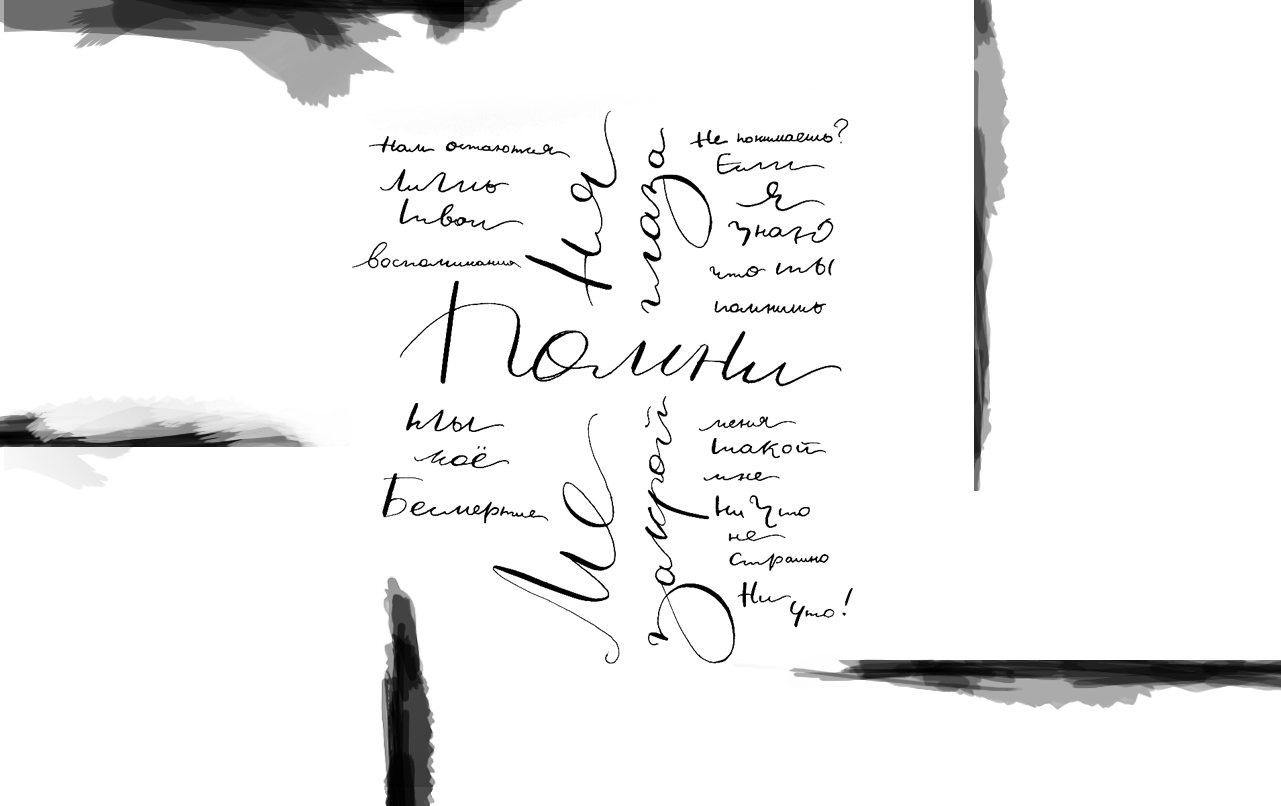 Нам остаются
лишь
твои
воспоминания
Меня
закрой глаза
Не понимаешь?
Если
Я
знаю
что ты
помнишь
Помни
Ты
моё
Бесмертие
меня
такой
мне
НиЧто
не
Страшно
Ни
Что!